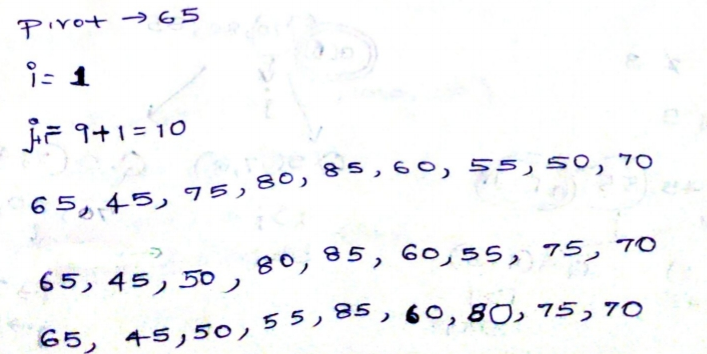 Pivot → 65
i = 1
j = 9+1 = 10
65, 45, 75, 80, 85, 60, 55, 50, 70
65, 45, 50, 80, 85, 60, 55, 75, 70
65, 45, 50, 55, 85, 60, 80, 75, 70